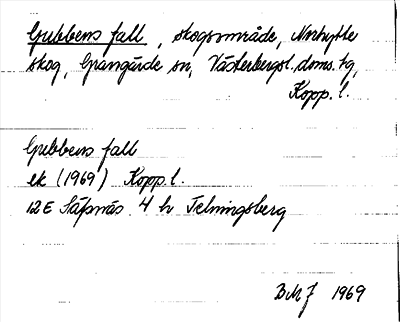 Gubbens fall, skogsområde, Norhytte
skog, Grangärde sn, Västerbergsl. doms. tg,
Kopp. l.
Gubbens fall
ek (1969) Kopp. l.
12E Säfsnäs 4 h Telningsberg
BMJ 1969